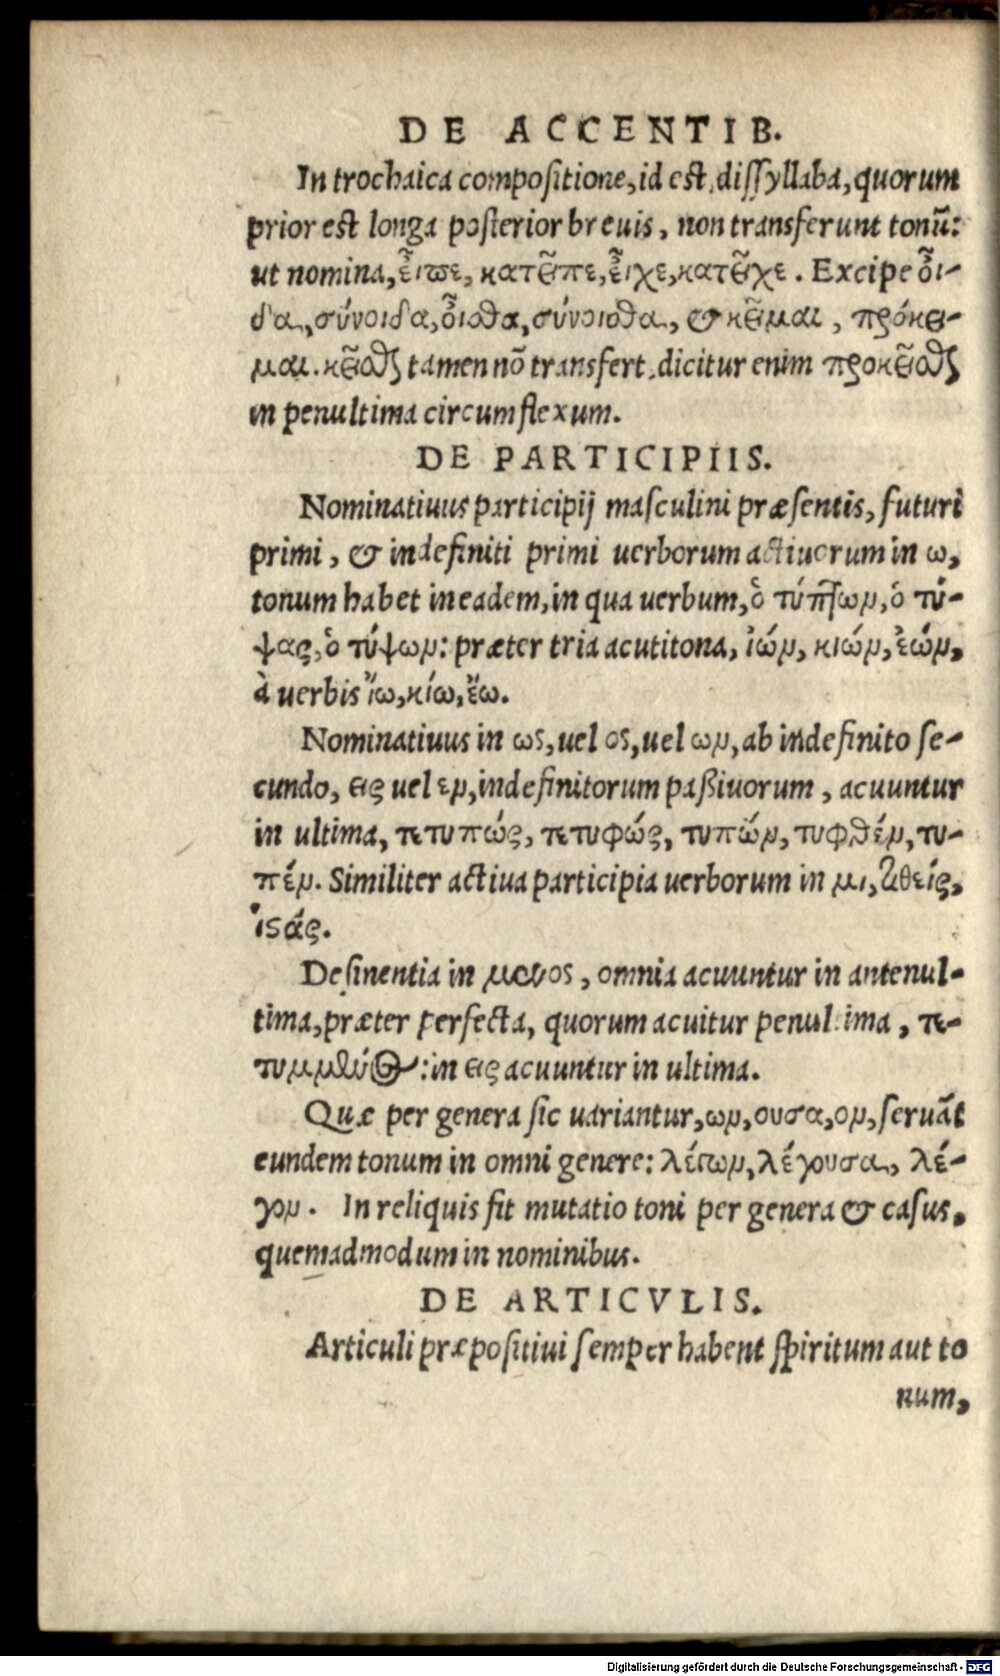 DE ACCENTIB.
In trochaica compositione, id est, dissyllaba, quorum
prior est longa posterior breuis, non transferunt tonũ:
ut nomina, εἶπε, κατεῖπε, εἶχε, κατεῖχε. Excipe οἶ-
δα, σύνοιδα, οἶσθα, σύνοισθα, & κεῖμαι, πρόκει-
μαι. κεῖσθαι tamen nõ transfert, dicitur enim προκεῖσθαι
in penultima circumflexum.
DE PARTICIPIIS.
Nominatiuus participij masculini præsentis, futuri
primi, & indefiniti primi uerborum actiuorum in ω,
tonum habet in eadem, in qua uerbum, ὁ τύπτων, ὁ τύ-
ψας, ὁ τύψων: præter tria acutitona, ἰών, κιών, ἐών,
à uerbis ἴω, κίω, ἔω.
Nominatiuus in ως, uel ος, uel ων, ab indefinito se-
cundo, εις uel εν, indefinitorum paßiuorum, acuuntur
in ultima, τετυπώς, τετυφώς, τυπών, τυφθέν, τυ-
πέν. Similiter actiua participia uerborum in μι, τιθείς,
ἱστάς.
Desinentia in μενος, omnia acuuntur in antenul-
tima, præter perfecta, quorum acuitur penultima, τε-
τυμμένος: in εις acuuntur in ultima.
Quæ per genera sic uariantur, ων, ουσα, ον, seruãt
eundem tonum in omni genere: λέγων, λέγουσα, λέ-
γον. In reliquis fit mutatio toni per genera & casus,
quemadmodum in nominibus.
DE ARTICVLIS.
Articuli præpositiui semper habent spiritum aut to
num,
Digitalisierung gefördert durch die Deutsche Forschungsgemeinschaft - DFG